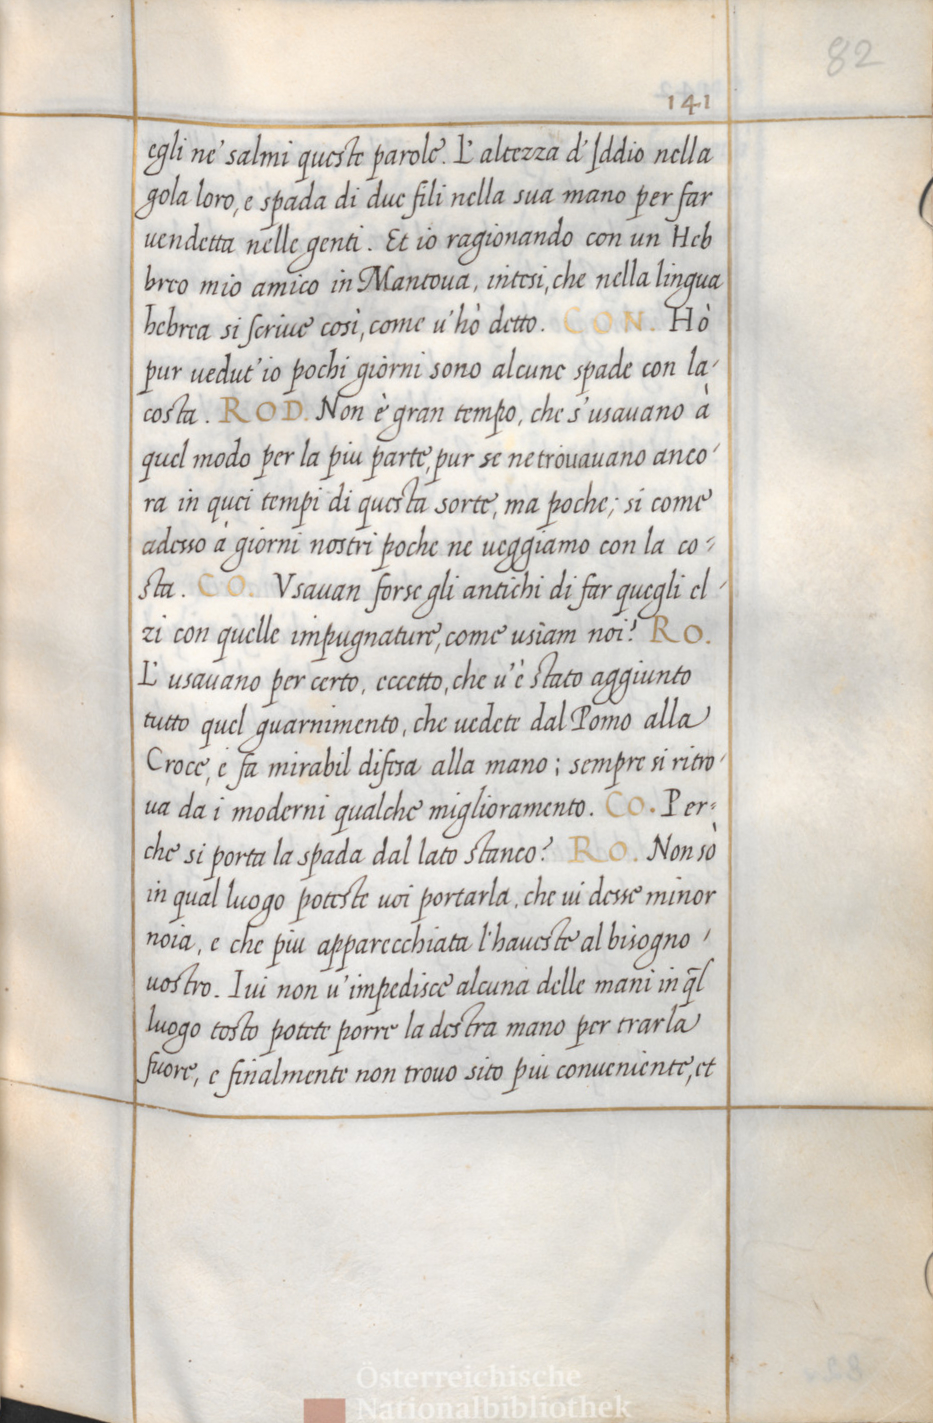 82
141
egli ne' salmi queste parole. L' altezza d' Iddio nella
gola loro, e spada di due fili nella sua mano per far
uendetta nelle genti. Et io ragionando con un Heb
breo mio amico in Mantoua, intesi, che nella lingua
hebrea si scriue così, come u' hò detto. CON. Hò
pur uedut' io pochi giorni sono alcune spade con la
costa. ROD. Non è gran tempo, che s' usauano à
quel modo per la piu parte, pur se ne trouauano anco-
ra in quei tempi di questa sorte, ma poche; si come
adesso à giorni nostri poche ne ueggiamo con la co-
sta. CO. Vsauan forse gli antichi di far quegli el-
zi con quelle impugnature, come usiam noi? RO.
L' usauano per certo, eccetto, che u' è stato aggiunto
tutto quel guarnimento, che uedete dal Pomo alla
Croce, e fa mirabil difesa alla mano; sempre si ritro-
ua da i moderni qualche miglioramento. CO. Per-
che si porta la spada dal lato stanco? RO. Non sò
in qual luogo poteste uoi portarla, che ui desse minor
noia, e che piu apparecchiata l' haueste al bisogno
uostro. Iui non u' impedisce alcuna delle mani in q̃l
luogo tosto potete porre la destra mano per trarla
fuore, e finalmente non trouo sito piu conueniente, et
Österreichische
Nationalbibliothek